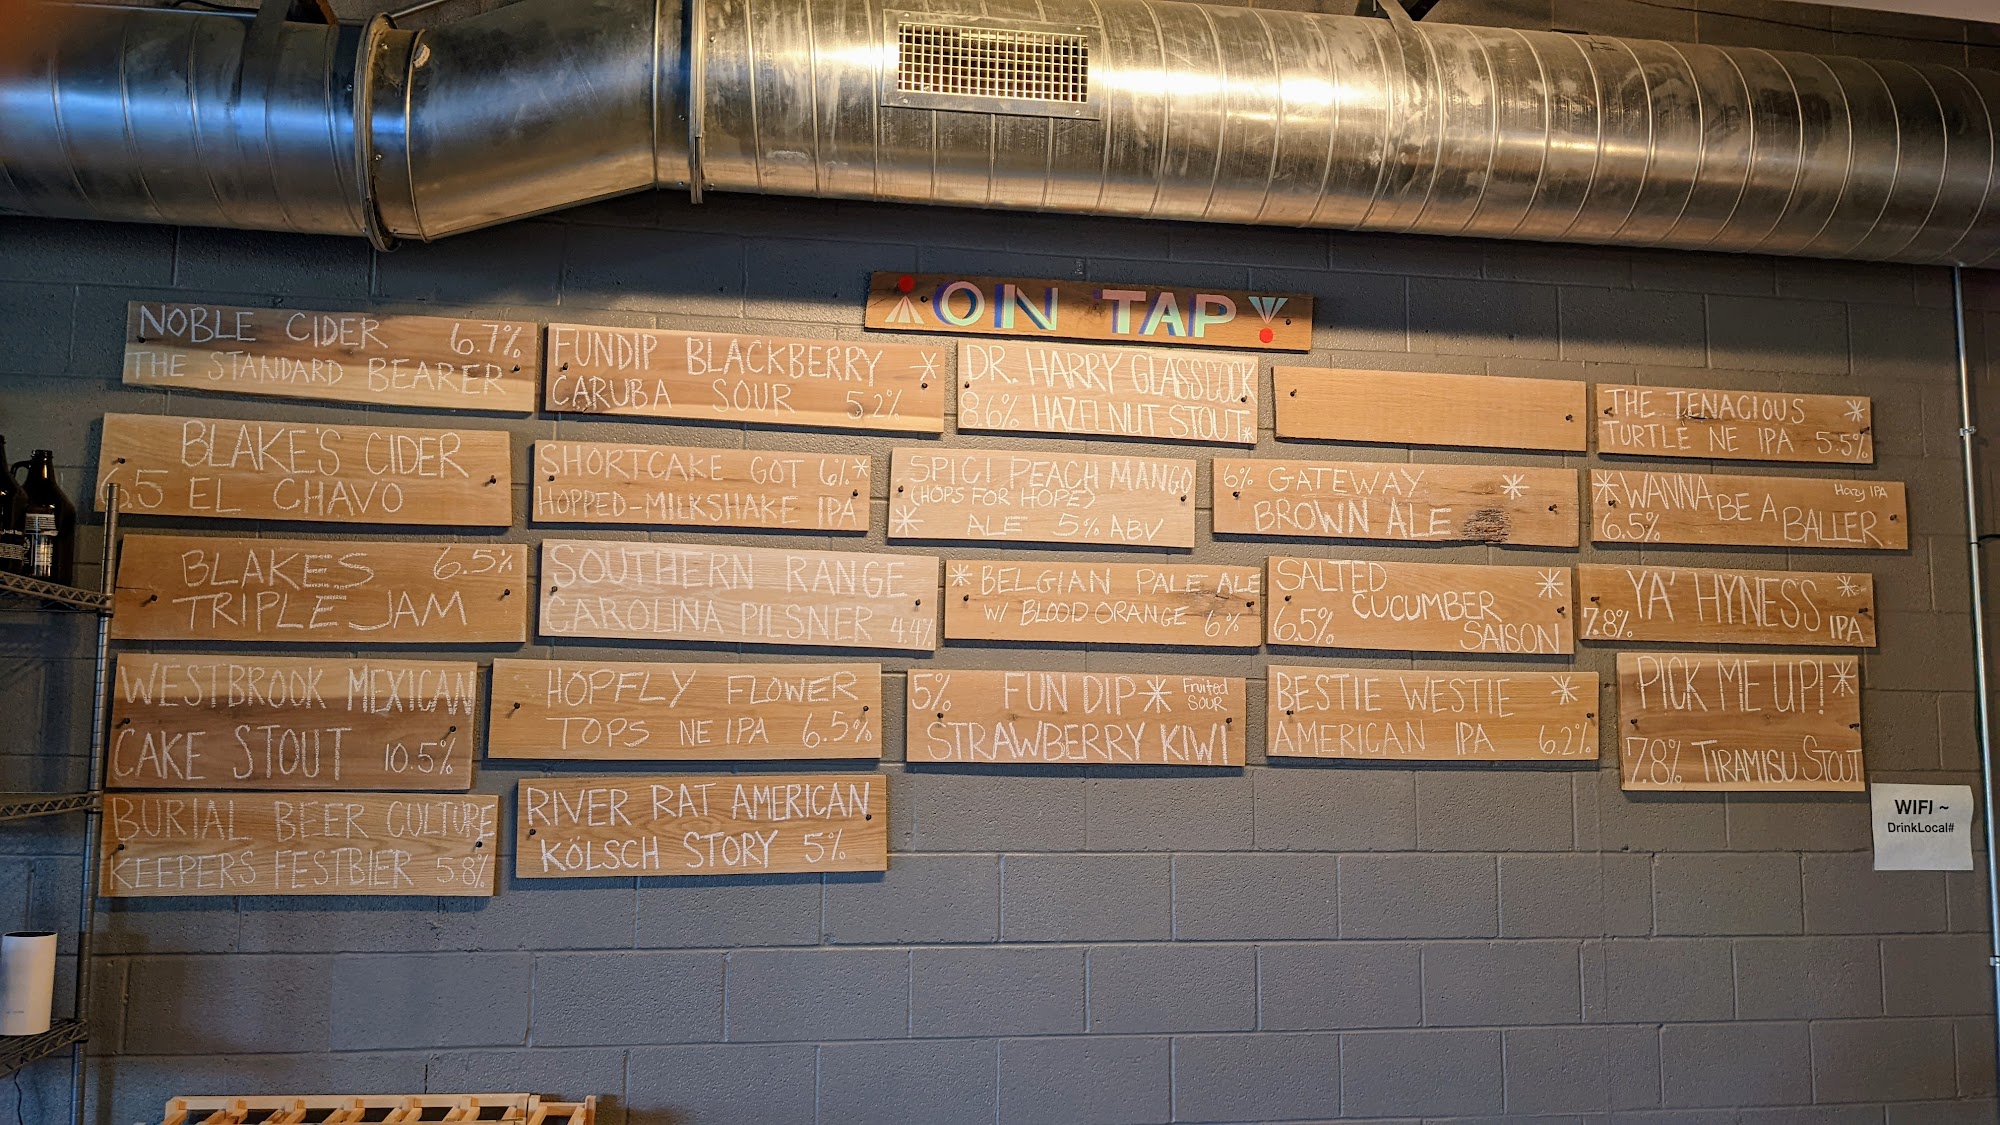 ON TAP
NOBLE CIDER 6.7%
THE STANDARD BEARER
BLAKE'S CIDER
6.5 EL CHAVO
BLAKES 6.5%
TRIPLE JAM
WESTBROOK MEXICAN
CAKE STOUT 10.5%
BURIAL BEER CULTURE
KEEPERS FESTBIER 5.8%
FUNDIP BLACKBERRY *
CARUBA SOUR 5.2%
SHORTCAKE GOT 6% *
HOPPED-MILKSHAKE IPA
SOUTHERN RANGE
CAROLINA PILSNER 4.4%
HOPFLY FLOWER
TOPS NE IPA 6.5%
RIVER RAT AMERICAN
KÖLSCH STORY 5%
DR. HARRY GLASSCOCK
8.6% HAZELNUT STOUT *
SPICI PEACH MANGO
(HOPS FOR HOPE)
* ALE 5% ABV
* BELGIAN PALE ALE
W/ BLOOD ORANGE 6%
5% FUN DIP * Fruited
SOUR
STRAWBERRY KIWI
6% GATEWAY *
BROWN ALE
SALTED *
CUCUMBER
6.5% SAISON
BESTIE WESTIE *
AMERICAN IPA 6.2%
THE TENACIOUS *
TURTLE NE IPA 5.5%
* WANNA BE A BALLER Hazy IPA
6.5%
YA' HYNESS *
7.8% IPA
PICK ME UP! *
7.8% TIRAMISU STOUT
WIFI ~
DrinkLocal#